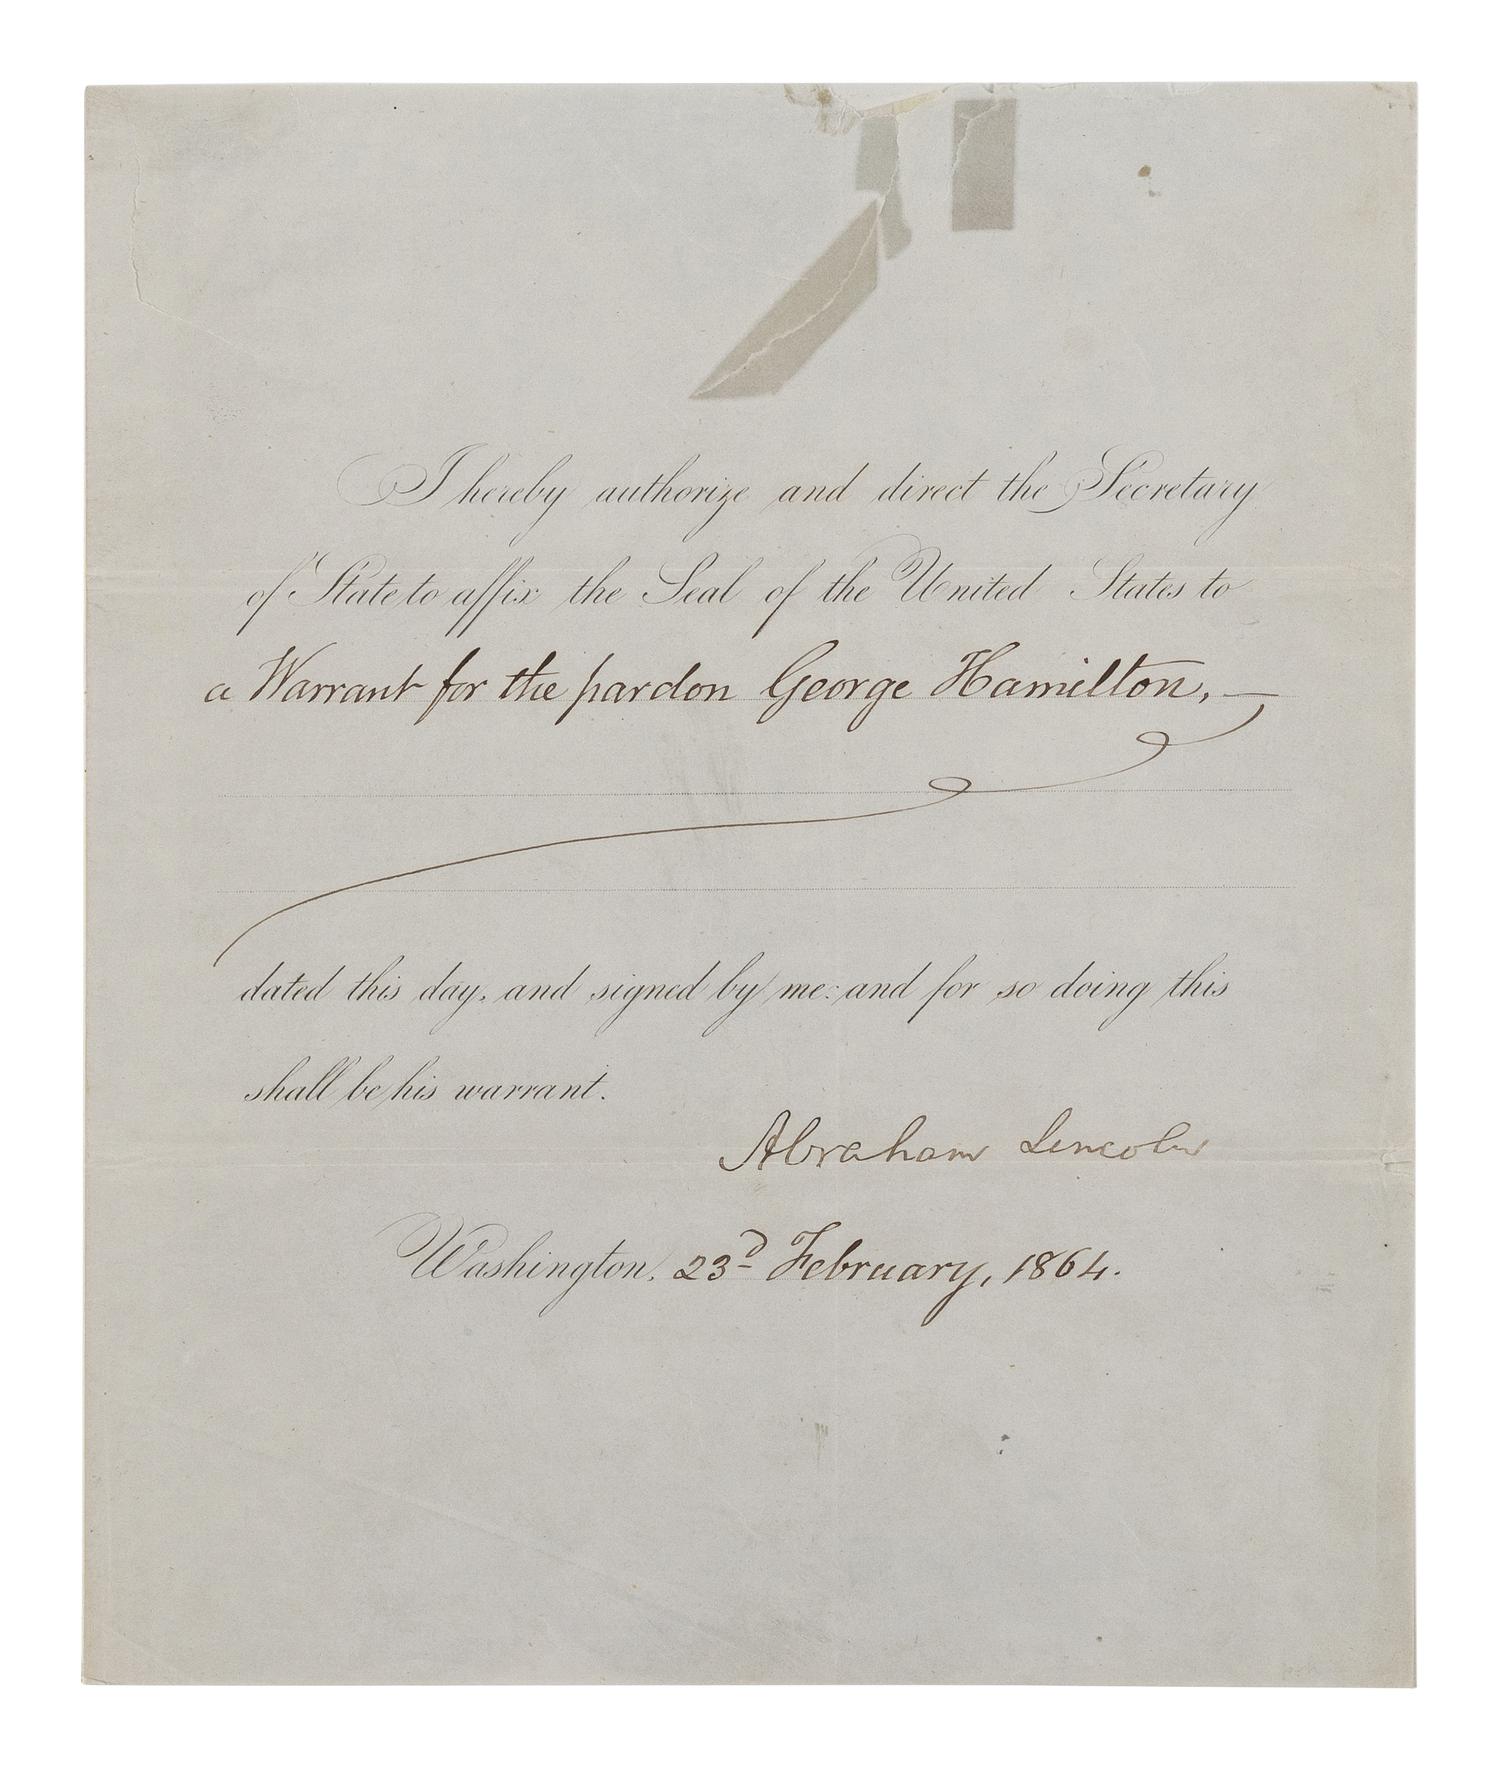 I hereby authorize and direct the Secretary
of State to affix the Seal of the United States to
a Warrant for the pardon George Hamilton, —
dated this day, and signed by me: and for so doing this
shall be his warrant.
Abraham Lincoln
Washington, 23d February, 1864.